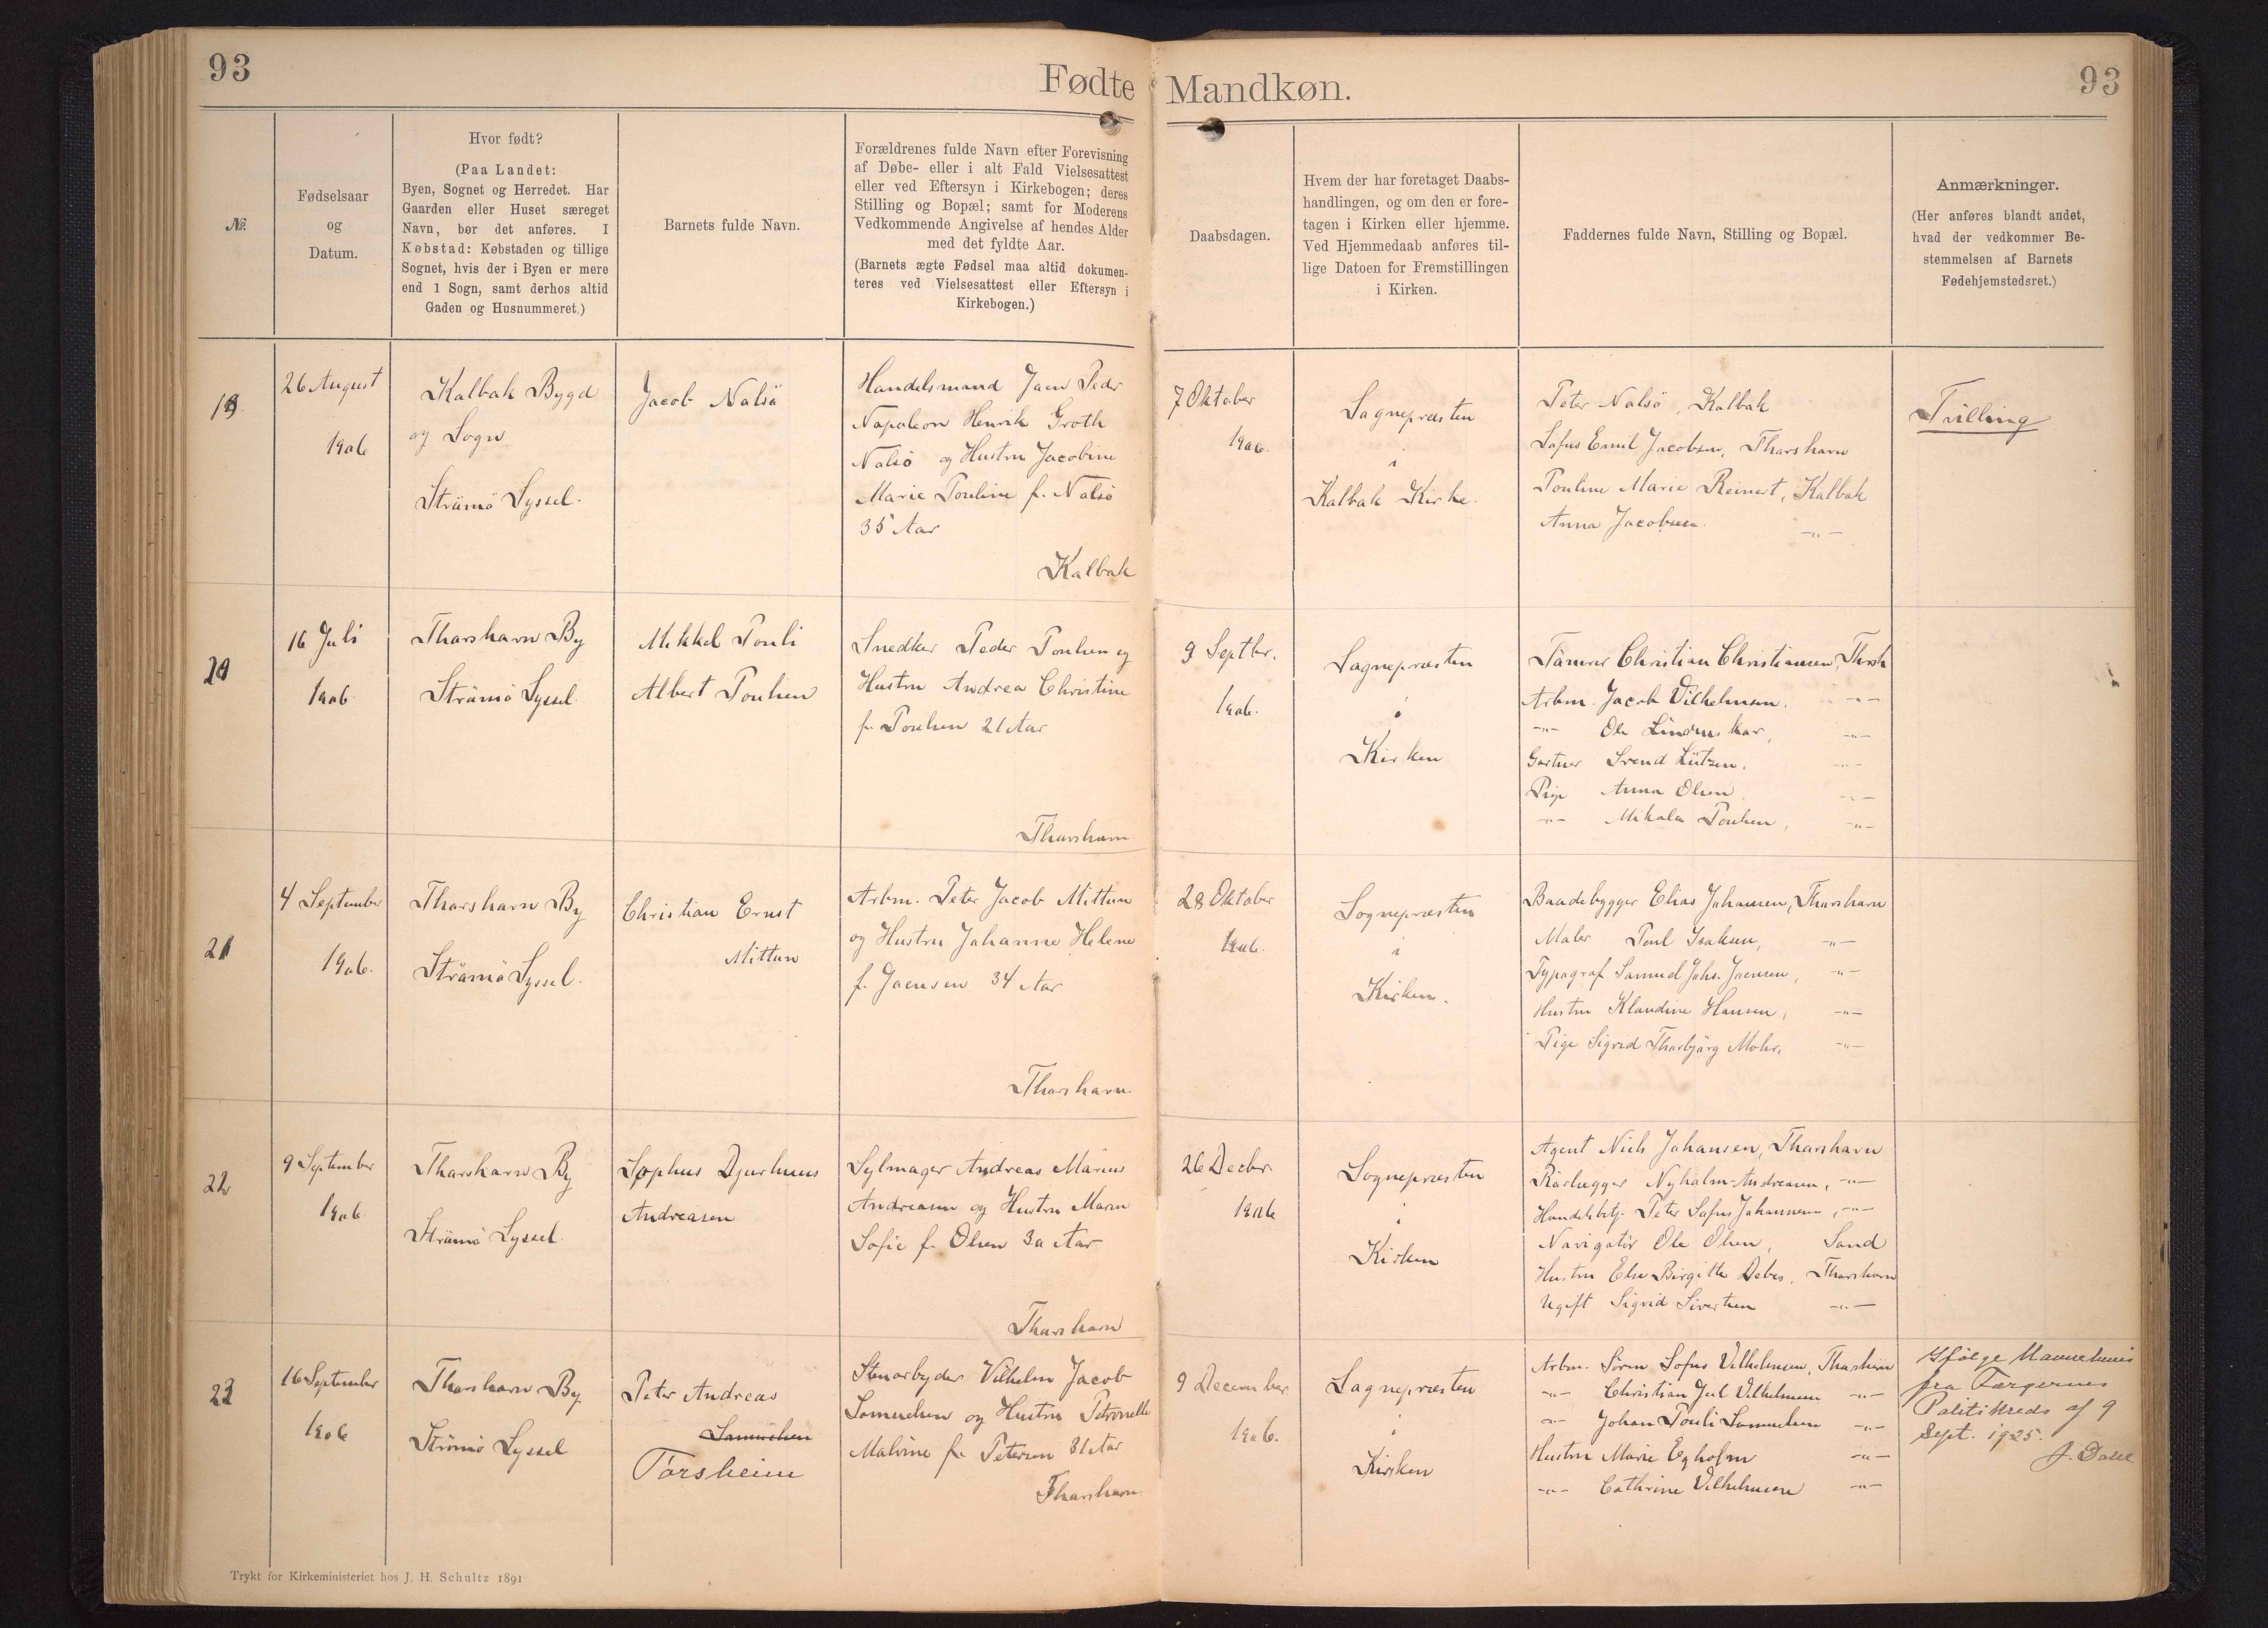 93
Fødte Mandkøn.
93
№.
Fødselsaar
og
Datum.
Hvor født?
(Paa Landet:
Byen, Sognet og Herredet. Har
Gaarden eller Huset særeget
Navn, bør det anføres. I
Købstad: Købstaden og tillige
Sognet, hvis der i Byen er mere
end 1 Sogn, samt derhos altid
Gaden og Husnummeret.)
Barnets fulde Navn.
Forældrenes fulde Navn efter Forevisning
af Døbe- eller i alt Fald Vielsesattest
eller ved Eftersyn i Kirkebogen; deres
Stilling og Bopæl; samt for Moderens
Vedkommende Angivelse af hendes Alder
med det fyldte Aar.
(Barnets ægte Fødsel maa altid dokumen-
teres ved Vielsesattest eller Eftersyn i
Kirkebogen.)
Daabsdagen.
Hvem der har foretaget Daabs-
handlingen, og om den er fore-
tagen i Kirken eller hjemme.
Ved Hjemmedaab anføres til-
lige Datoen for Fremstillingen
i Kirken.
Faddernes fulde Navn, Stilling og Bopæl.
Anmærkninger.
(Her anføres blandt andet,
hvad der vedkommer Be-
stemmelsen af Barnets
Fødehjemstedsret.)
19
26 August
1906
Kalbak Bygd
og Sogn
Strömö Syssel.
Jacob Nalsö
Handelsmand Joen Peder
Napoleon Henrik Groth
Nalsö og Hustru Jacobine
Marie Pouline f. Nalsö
35 Aar
Kalbak
7 Oktober
1906.
Sognepræsten
i
Kalbak Kirke.
Peter Nalsö, Kalbak
Sofus Emil Jacobsen, Thorshavn
Pouline Marie Reinert, Kalbak
Anna Jacobsen. -"-
Tvilling
20
16 Juli
1906.
Thorshavn By
Strömö Syssel.
Mikkel Pouli
Albert Poulsen
Snedker Peder Poulsen og
Hustru Andrea Christine
f. Poulsen 21 Aar
Thorshavn
9 Septbr.
1906.
Sognepræsten
i
Kirken
Tömrer Christian Christiansen, Thorsh
Arbm. Jacob Vilhelmsen. -"-
-"- Ole Lindenskov, -"-
Gartner Svend Lützen. -"-
Pige Anna Olsen -"-
-"- Mikala Poulsen, -"-
21
4 September
1906.
Thorshavn By
Strömö Syssel.
Christian Ernst
Mittun
Arbm. Peter Jacob Mittun
og Hustru Johanne Helene
f. Joensen 34 Aar
Thorshavn.
28 Oktober
1906.
Sognepræsten
i
Kirken.
Baadebygger Elias Johansen, Thorshavn
Maler Poul Isaksen, -"-
Typograf Samuel Johs. Joensen, -"-
Hustru Klaudine Hansen, -"-
Pige Sigrid Thorbjörg Mohr. -"-
22
9 September
1906
Thorshavn By
Strömö Syssel.
Sophus Djurhuus
Andreasen
Sejlmager Andreas Marius
Andreasen og Hustru Maren
Sofie f. Olsen 30 Aar
Thorshavn
26 Decbr.
1906
Sognepræsten
i
Kirken
Agent Niels Johansen, Thorshavn
Nyholm-Andreasen, -"-
Handelsbetj. Peter Sofus Johannesen, -"-
Navigatör Ole Olsen, Sand
Hustru Else Birgitte Debes, Thorshavn
Ugift Sigrid Sivertsen -"-
23
16 September
1906
Thorshavn By
Strömö Syssel
Peter Andreas
Samuelsen
Torsheim
Stenarbejder Vilhelm Jacob
Samuelsen og Hustru Petronelle
Malvine f. Petersen 31 Aar
Thorshavn.
9 December
1906.
Sognepræsten
i
Kirken
Arbm. Sören Sofus Vilhelmsen, Thorshavn
-"- Christian Jul Vilhelmsen -"-
-"- Johan Pouli Samuelsen -"-
Hustru Marie Egholm -"-
-"- Cathrine Vilhelmsen -"-
Ifølge Navnebevis
fra Færøernes
Politikreds af 9
Sept. 1925.
J. Dahl
Trykt for Kirkeministeriet hos J. H. Schultz 1891